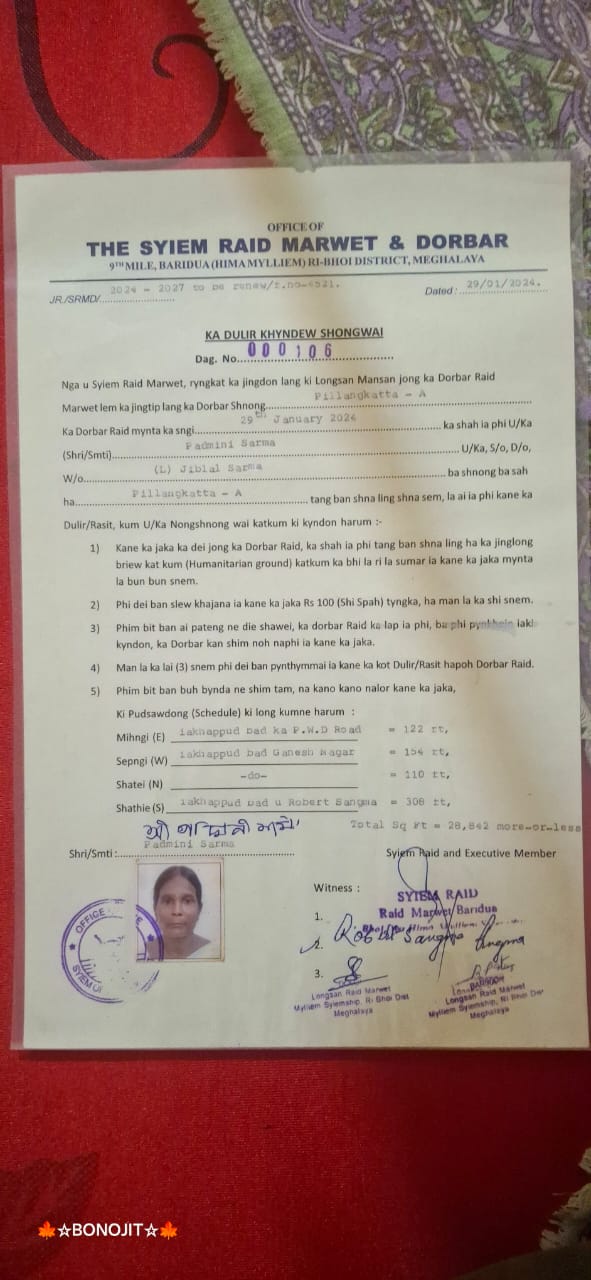 OFFICE OF
THE SYIEM RAID MARWET & DORBAR
9TH MILE, BARIDUA (HIMA MYLLIEM) RI-BHOI DISTRICT, MEGHALAYA
JR./SRMD/ 2024 - 2027 to be renew/r.no-4521. Dated : 29/01/2024.
KA DULIR KHYNDEW SHONGWAI
Dag. No. 000106
Nga u Syiem Raid Marwet, ryngkat ka jingdon lang ki Longsan Mansan jong ka Dorbar Raid
Marwet lem ka jingtip lang ka Dorbar Shnong Pillangkatta - A
Ka Dorbar Raid mynta ka sngi 29th January 2024 ka shah ia phi U/Ka
(Shri/Smti) Padmini Sarma U/Ka, S/o, D/o,
W/o (L) Jiblal Sarma ba shnong ba sah
ha Pillangkatta - A tang ban shna ling shna sem, la ai ia phi kane ka
Dulir/Rasit, kum U/Ka Nongshnong wai katkum ki kyndon harum :-
1) Kane ka jaka ka dei jong ka Dorbar Raid, ka shah ia phi tang ban shna ling ha ka jinglong
briew kat kum (Humanitarian ground) katkum ka bhi la ri la sumar ia kane ka jaka mynta
la bun bun snem.
2) Phi dei ban slew khajana ia kane ka jaka Rs 100 (Shi Spah) tyngka, ha man la ka shi snem.
3) Phim bit ban ai pateng ne die shawei, ka dorbar Raid ka lap ia phi, ba phi pynkhein iaki
kyndon, ka Dorbar kan shim noh naphi ia kane ka jaka.
4) Man la ka lai (3) snem phi dei ban pynthymmai ia kane ka kot Dulir/Rasit hapoh Dorbar Raid.
5) Phim bit ban buh bynda ne shim tam, na kano kano nalor kane ka jaka,
Ki Pudsawdong (Schedule) ki long kumne harum :
Mihngi (E) iakhappud bad ka P.W.D Road = 122 ft,
Sepngi (W) iakhappud bad Ganesh Nagar = 154 ft,
Shatei (N) -do- = 110 ft,
Shathie (S) iakhappud bad u Robert Sangma = 308 ft,
Total Sq Ft = 28,842 more-or-less
Shri/Smti : Padmini Sarma
Syiem Raid and Executive Member
Witness :
SYIEM RAID
Raid Marwet Baridua
1.
2. Robert Sangma
3.
Longsan Raid Marwet
Mylliem Syiemship, Ri Bhoi Dist
Meghalaya
Longsan Raid Marwet
Mylliem Syiemship, Ri Bhoi Dist
Meghalaya
🍁☆BONOJIT☆🍁